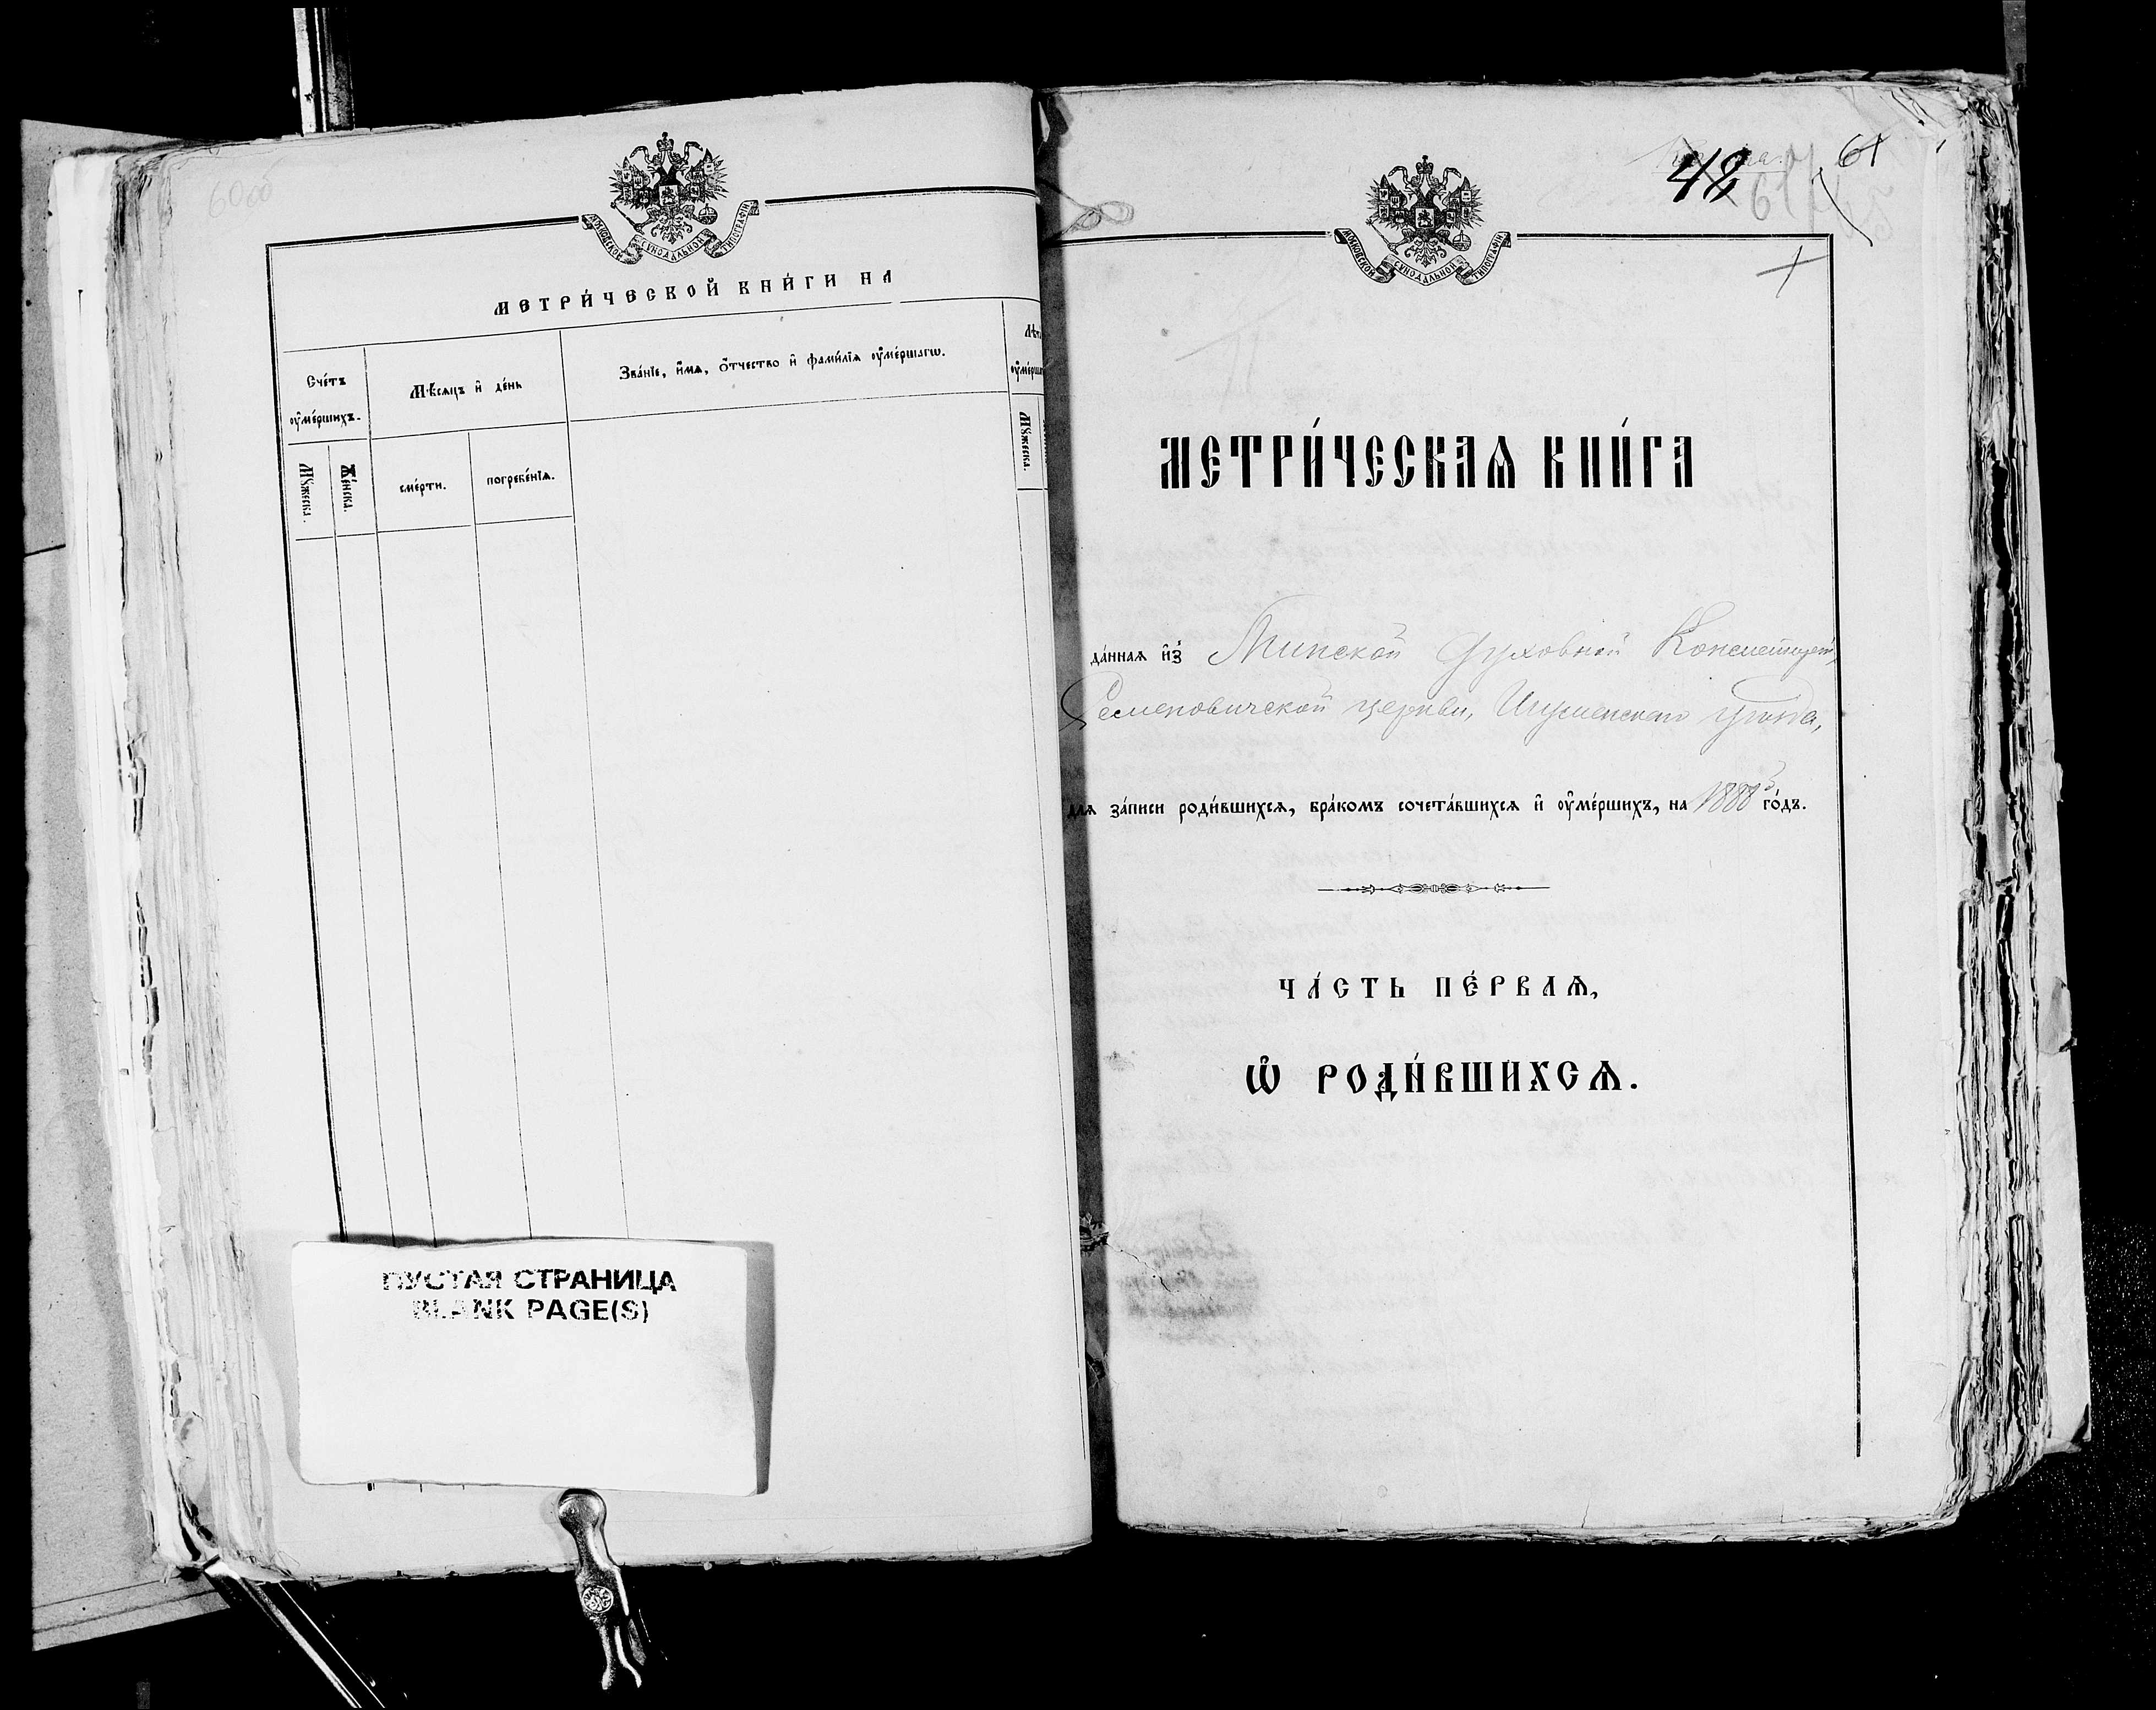 60об
МОСКОВСКОЙ СѴНОДАЛЬНОЙ ТИПОГРАФІИ
МЕТРИ́ЧЕСКОЙ КНИ́ГИ НА
Сче́тъ оу҆ме́ршихъ.
Мѣ́сяцъ и҆ де́нь
Зва́нїе, и҆́мѧ, ѻ҆́тчество и҆ фами́лїѧ оу҆ме́ршагѡ.
Лѣт
оу҆ме́рша
Мꙋ́жеска.
Же́нска.
сме́рти.
погребе́нїѧ.
Мꙋ́жеска.
ПУСТАЯ СТРАНИЦА
BLANK PAGE(S)
61
42
61
МОСКОВСКОЙ СѴНОДАЛЬНОЙ ТИПОГРАФІИ
МЕТРИ́ЧЕСКАѦ КНИ́ГА
да́ннаѧ и҆з̾ Минской Духовной Консисторіи,
Семеновичской церкви, Игуменскаго уѣзда,
для за́писи роди́вшихсѧ, бра́комъ сочета́вшихсѧ и҆ оу҆ме́ршихъ, на 1888 го́дъ.
ЧА́СТЬ ПЕ́РВАѦ,
Ѡ҆ РОДИ́ВШИХСѦ.